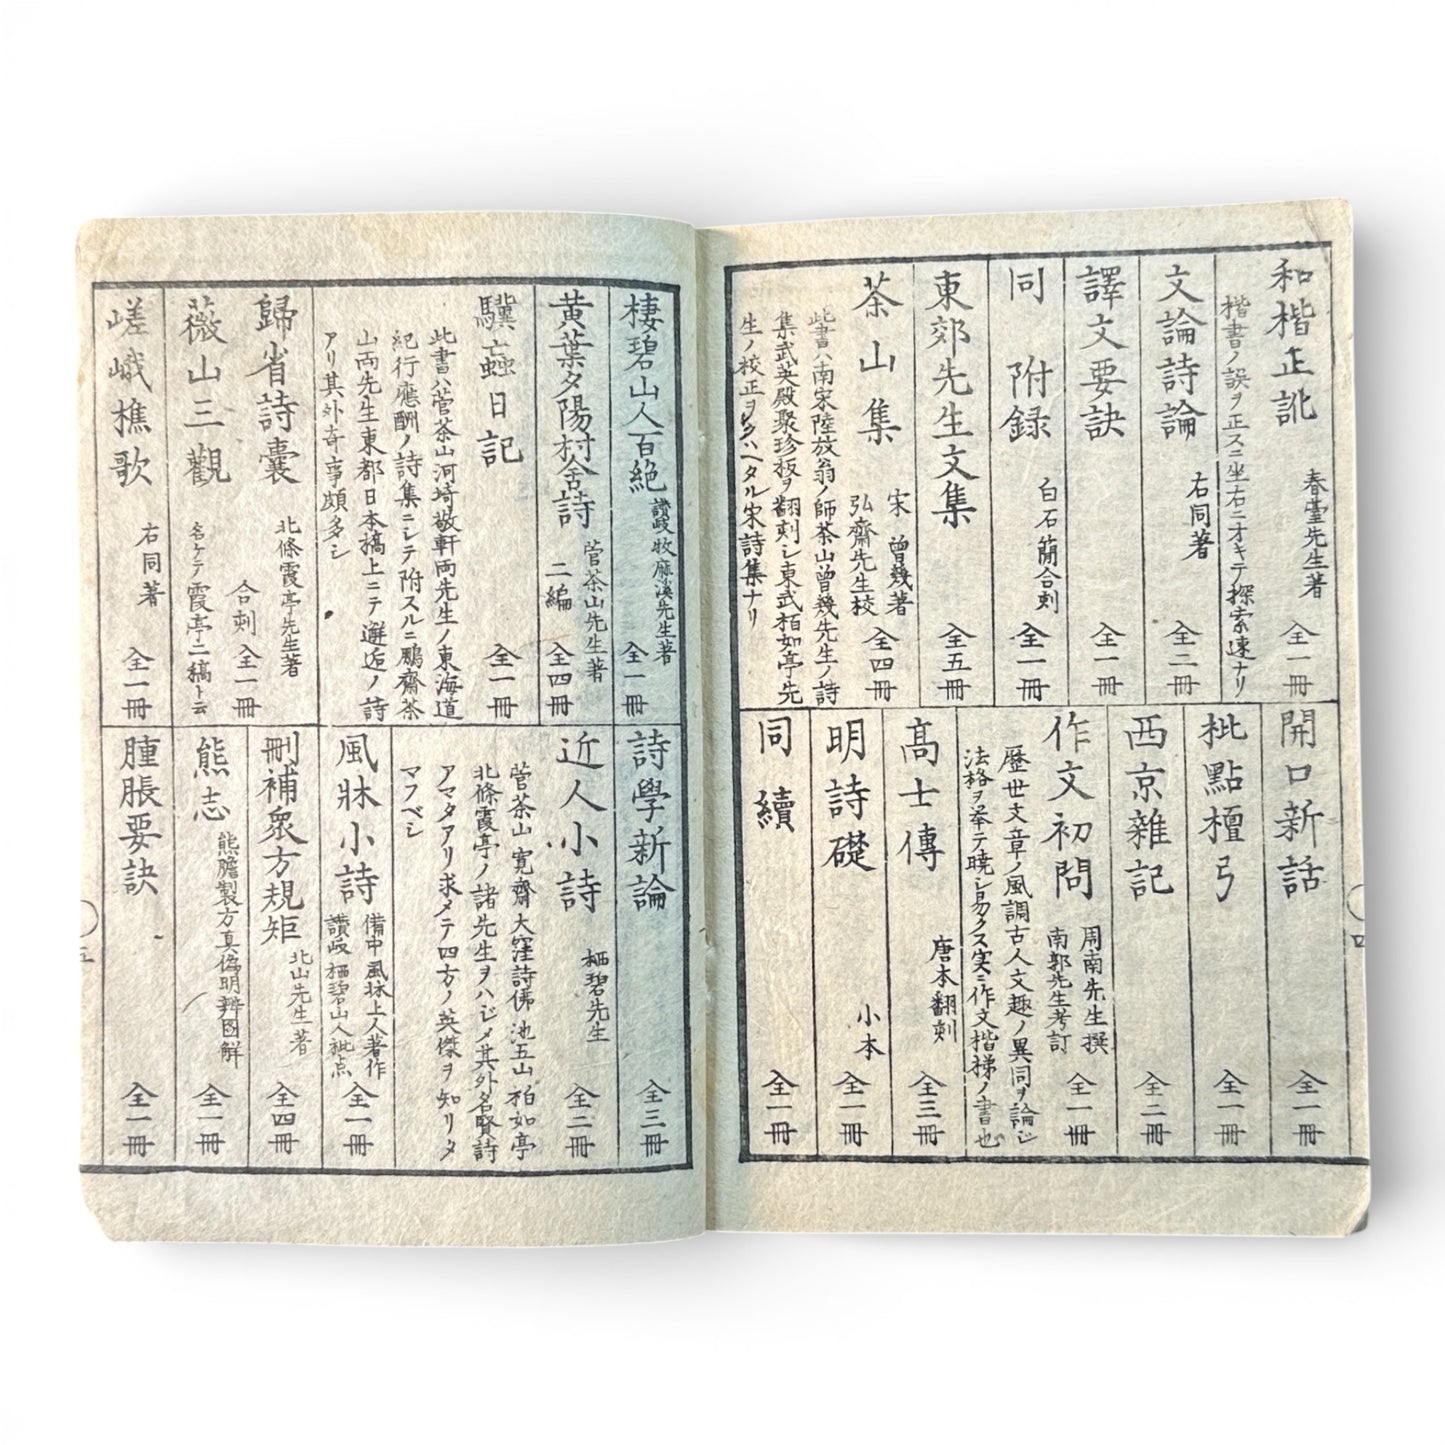 和楷正訛 春臺先生著 全一冊
楷書ノ誤ヲ正スニ坐右ニオキテ探索速ナリ
文論詩論 右同著 全二冊
譯文要訣 全一冊
同附録 白石簡合刻 全一冊
東郊先生文集 全五冊
茶山集 宋 曾幾著 弘齋先生校 全四冊
此書ハ南宋陸放翁ノ師茶山曾幾先生ノ詩
集武英殿聚珍板ヲ翻刻シ東武柏如亭先
生ノ校正ヲクハヘタル宋詩集ナリ
開口新話 全一冊
批點檀弓 全一冊
西京雜記 全二冊
作文初問 周南先生撰 南郭先生考訂 全一冊
歴世文章ノ風調古人文趣ノ異同ヲ論シ
法格ヲ举テ暁シ易クス実ニ作文楷梯ノ書也
髙士傳 唐本翻刻 全三冊
明詩礎 小本 全一冊
同續 全一冊
四
棲碧山人百絶 讃岐牧麻溪先生著 全一冊
黄葉夕陽村舍詩 菅茶山先生著 二編 全四冊
驥蝱日記 全一冊
此書ハ菅茶山河埼敬軒両先生ノ東海道
紀行應酬ノ詩集ニシテ附スルニ鵬齋茶
山両先生東都日本橋上ニテ邂逅ノ詩
アリ其外奇事頗多シ
歸省詩囊 北條霞亭先生著
合刻 全一冊
薇山三觀 名ケテ霞亭二稿ト云
嵯峨樵歌 右同著 全一冊
詩學新論 全三冊
近人小詩 栖碧先生 全二冊
菅茶山 寛齋 大窪詩佛 池五山 柏如亭
北條霞亭ノ諸先生ヲハジメ其外名賢詩
アマタアリ求メテ四方ノ英傑ヲ知リタ
マフベシ
風牀小詩 備中風牀上人著作 讃岐栖碧山人批点 全一冊
刪補衆方規矩 北山先生著 全四冊
熊志 熊膽製方真偽明辨図解 全一冊
腫脹要訣 全一冊
五